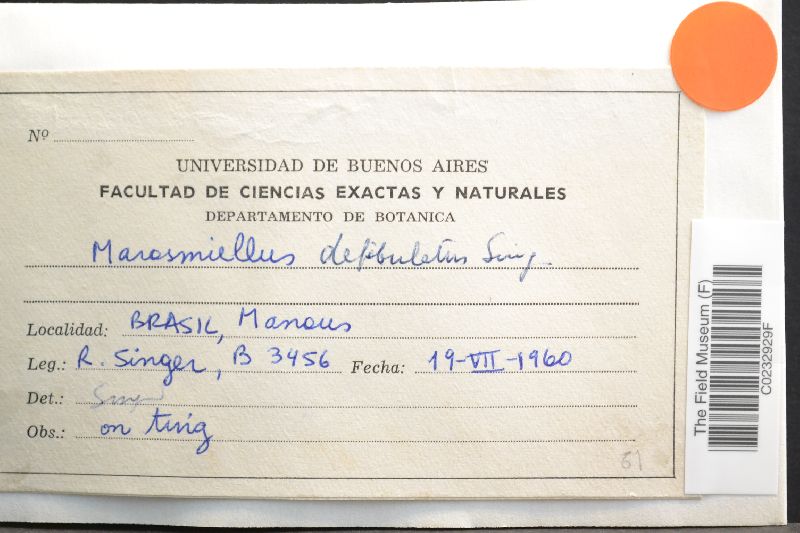 Nº
UNIVERSIDAD DE BUENOS AIRES
FACULTAD DE CIENCIAS EXACTAS Y NATURALES
DEPARTAMENTO DE BOTANICA
Marasmiellus defibulatus Sing.
Localidad: BRASIL, Manaus
Leg.: R. Singer, B 3456 Fecha: 19-VII-1960
Det.: Singer
Obs.: on twig
61
The Field Museum (F)
C0232929F